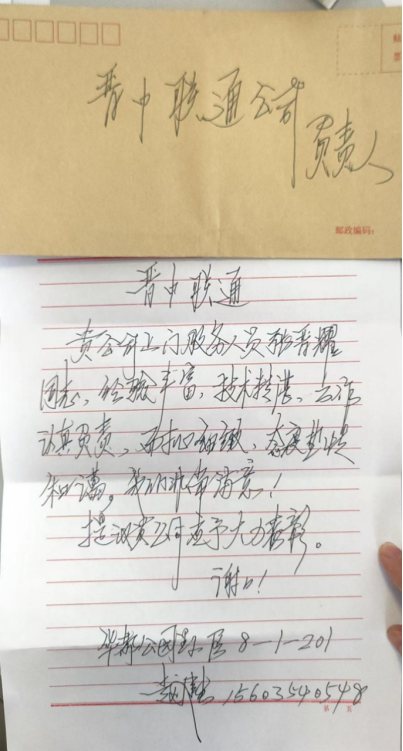 邮
票
晋中联通公司
负责人
邮政编码:
晋中联通
贵公司上门服务人员张晋耀
同志、经验丰富,技术精湛、工作
认真负责、而扣细致、态度热情
和谐。我们非常满意!
提议贵公司应予大力表彰。
谢谢!
华都公园小区 8-1-201
15603540548
第 页